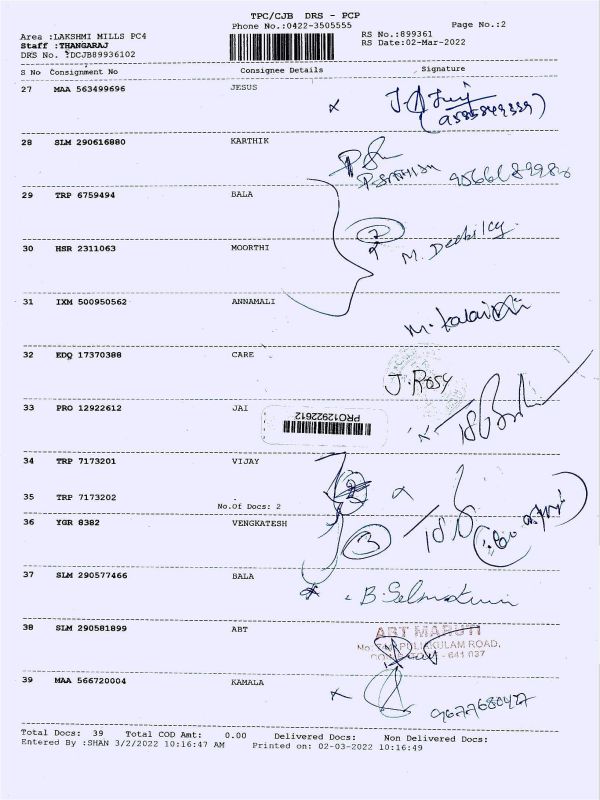 TPC/CJB DRS - PCP
Phone No.:0422-3505555
Page No.:2
Area :LAKSHMI MILLS PC4
RS No.:899361
Staff :THANGARAJ
RS Date:02-Mar-2022
DRS No. :DCJB89936102
S No Consignment No Consignee Details Signature
27 MAA 563499696 JESUS
28 SLM 290616880 KARTHIK
29 TRP 6759494 BALA
7
30 HSR 2311063 MOORTHI
31 IXM 500950562 ANNAMALI
32 EDQ 17370388 CARE
J. Rosy
33 PRO 12922612 JAI
PRO12922612
34 TRP 7173201 VIJAY
35 TRP 7173202
No.Of Docs: 2
36 YGR 8382 VENGKATESH
3
37 SLM 290577466 BALA
38 SLM 290581899 ABT
ABT MARUTI
ROAD,
641 037
39 MAA 566720004 KAMALA
9677680427
Total Docs: 39 Total COD Amt: 0.00 Delivered Docs: Non Delivered Docs:
Entered By :SHAN 3/2/2022 10:16:47 AM Printed on: 02-03-2022 10:16:49